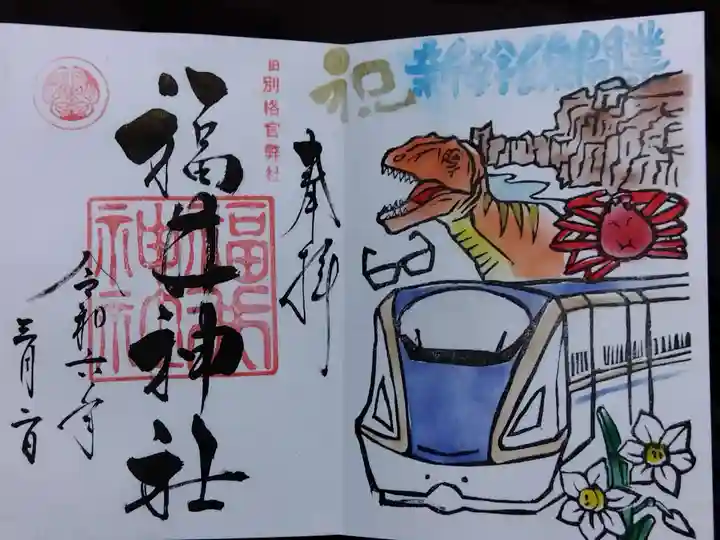 祝 新幹線開業
奉拝
旧別格官幣社
福井神社
福井
神社
令和六年
三月二日